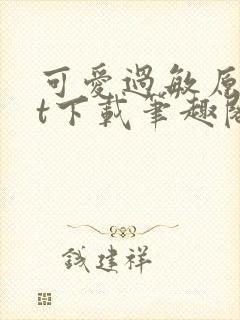 可愛過敏原
t下載筆趣閣
錢建祥